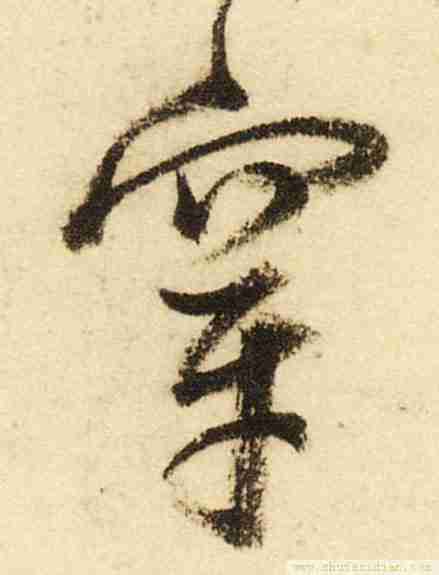 穿
www.shufazidian.com